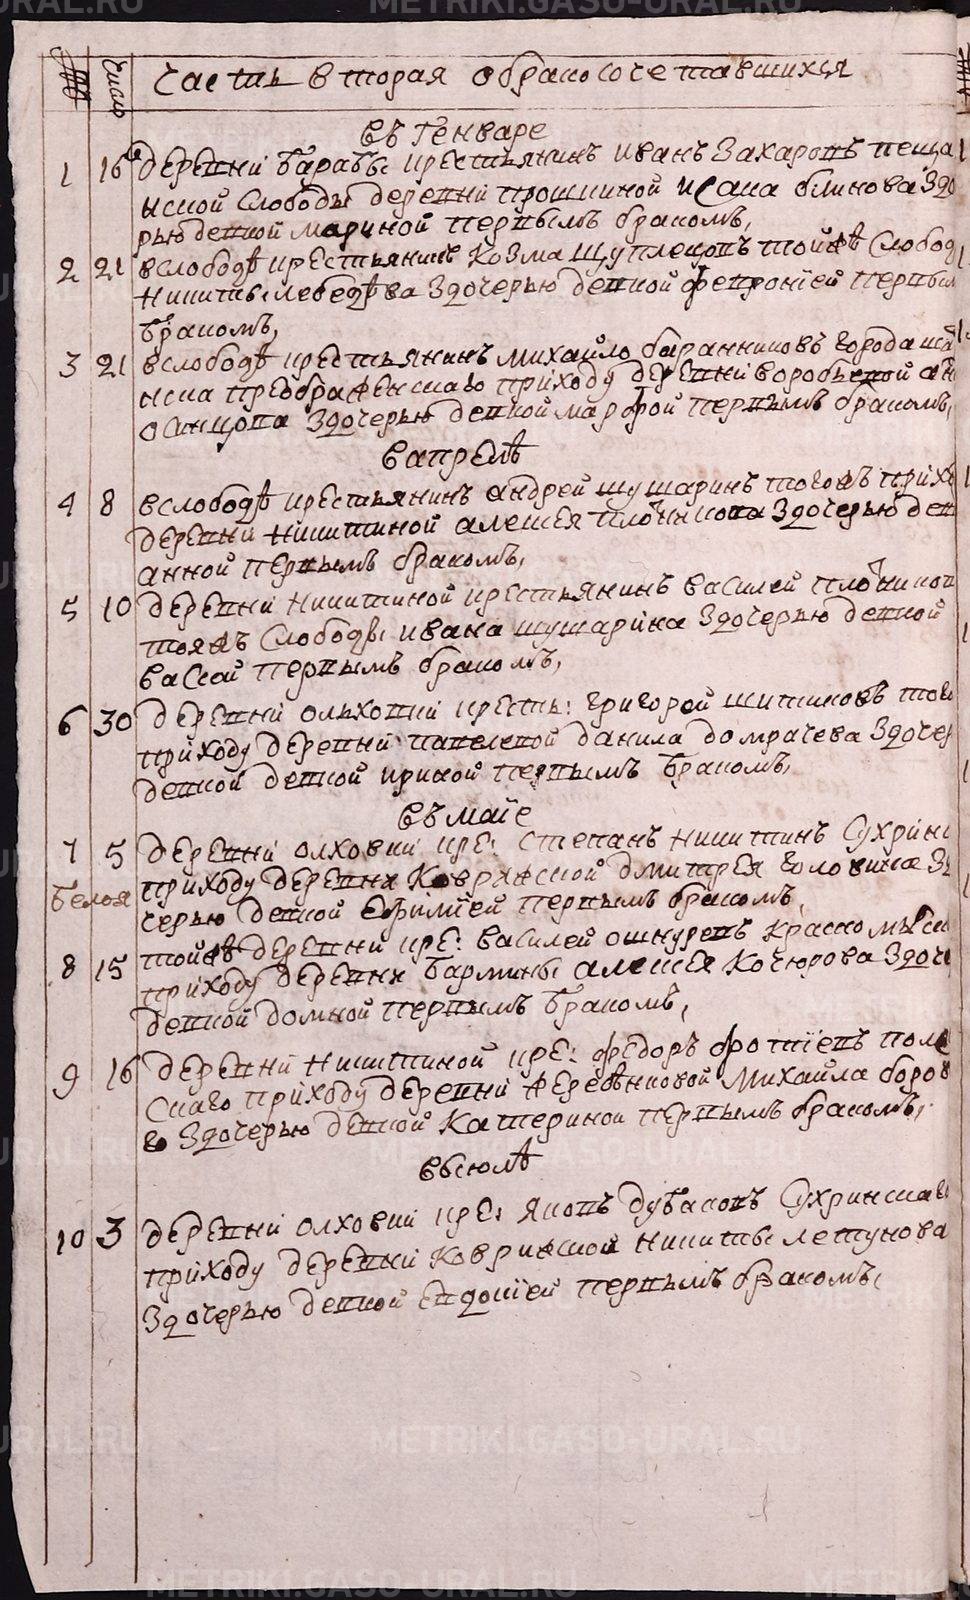 METRIKI.GASO-URAL.RU
№ Число Часть вторая обракосочетавшихся
въ генваре
1 16 деревни барабы крестьянинъ иванъ Захаровъ пеща
нской слободы деревни прошкиной исака блинова Здо
рью девкой мариной первымъ бракомъ,
2 21 вслободѣ крестьянинъ Козма Щуплецовъ тойжъ слобод
никиты лебедѣва Здочерью девкой февронїей первым
бракомъ,
3 21 вслободѣ крестьянинъ михайло баранниковъ города
нска преображенскаго приходу деревни воробьевой
осинцова Здочерью девкой марфой первымъ бракомъ,
вапрелѣ
4 8 вслободѣ крестьянинъ андрей шушаринъ тогожъ прихо
деревни никитиной алексея плотникова Здочерью дев
анной первымъ бракомъ,
5 10 деревни никитиной крестьянинъ василей плотников
тояжъ слободы ивана шушарина Здочерью девкой
вассой первымъ бракомъ,
6 30 деревни ольховки кресть: григорей шитиковъ того
приходу деревни панкевой данила домрачева Здочер
девкой девкой ириной первымъ бракомъ,
въ маїе
7 5 деревни олховки кре: степанъ никитинъ Сухринс
приходу деревни Ковринской дмитрея головина З
Белоя
черью девкой Ефимїей первымъ бракомъ,
8 15 тойжъ деревни кре: василей ошкуревъ красномыс
приходу деревни бармины алексея Кочюрова Здоче
девкой домной первымъ бракомъ,
9 16 деревни никитиной кре: федоръ фотїевъ поле
скаго приходу деревни жеребенковой михайла боров
го Здочерью девкой Катериной первымъ бракомъ,
выюлѣ
10 3 деревни олховки кре: яковъ дубасовъ Сухринскаго
приходу деревни Ковринской никиты летунова
Здочерью девкой Евдокїей первымъ бракомъ,
METRIKI.GASO-URAL.RU